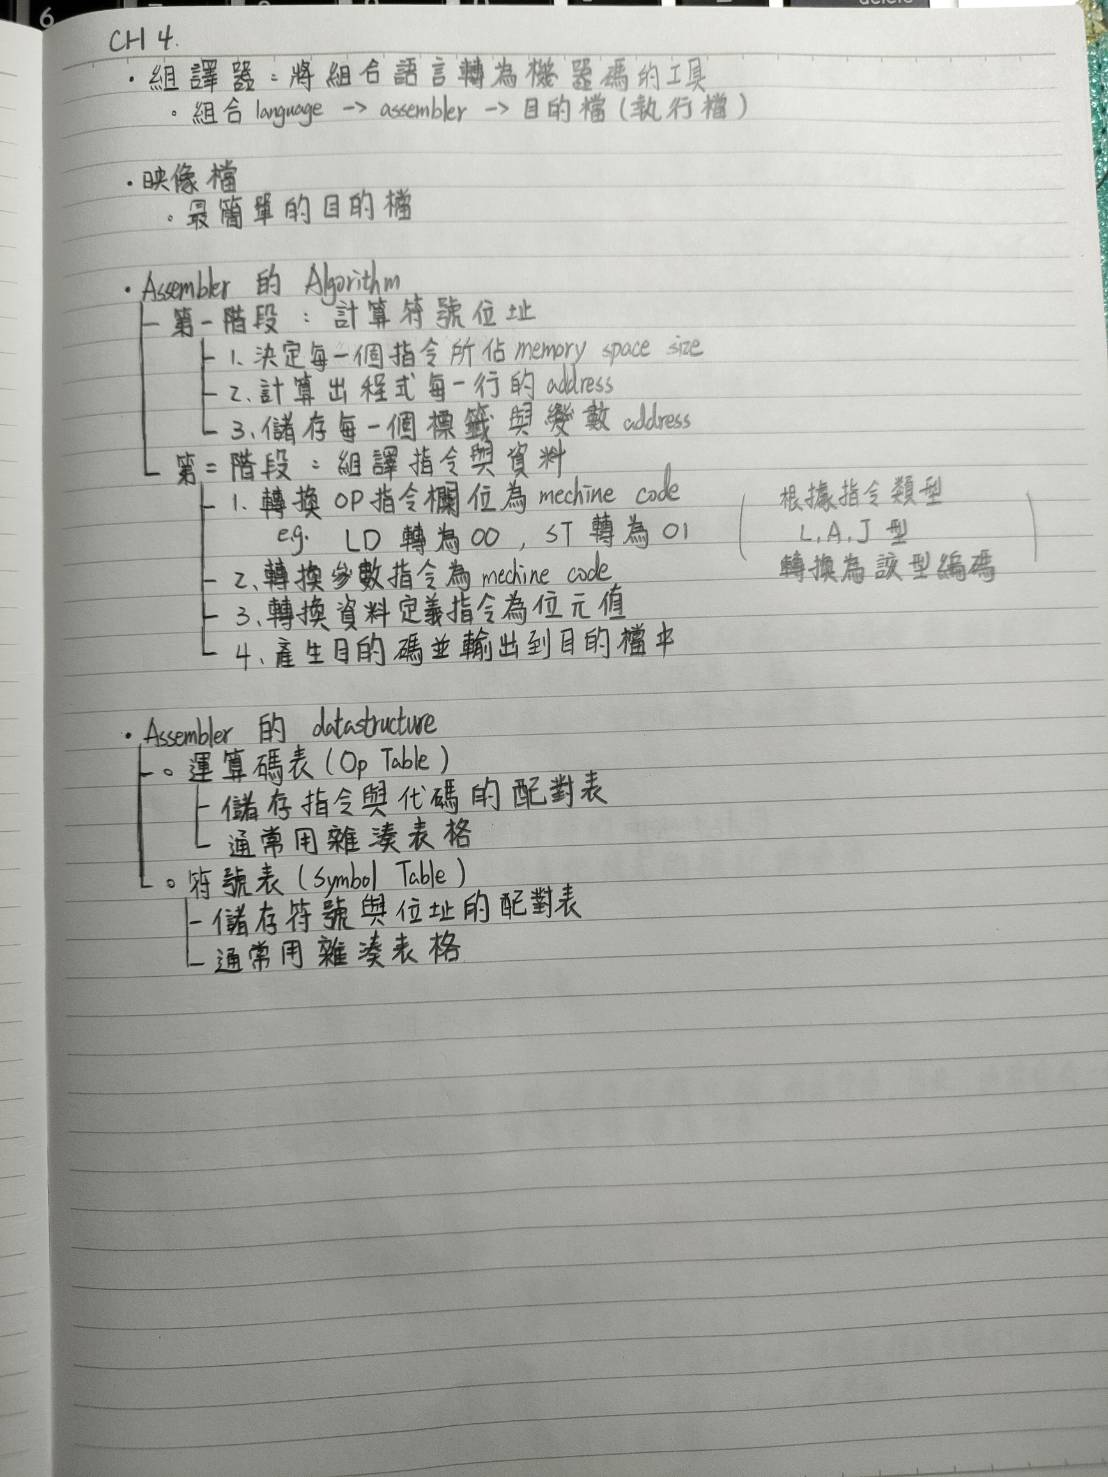 CH 4.
・組譯器：將組合語言轉為機器碼的工具
。組合 language -> assembler -> 目的檔 (執行檔)
・映像檔
。最簡單的目的檔
・Assembler 的 Algorithm
第一階段：計算符號位址
1. 決定每一個指令所佔 memory space size
2. 計算出程式每一行的 address
3. 儲存每一個標籤與變數 address
第二階段：組譯指令與資料
1. 轉換 OP 指令欄位為 mechine code
e.g. LD 轉為 00 , ST 轉為 01
(根據指令類型
L, A, J 型
轉換為該型編碼)
2. 轉換參數指令為 mechine code
3. 轉換資料定義指令為位元值
4. 產生目的碼並輸出到目的檔中
・Assembler 的 datastructure
。運算碼表 (Op Table)
儲存指令與代碼的配對表
通常用雜湊表格
。符號表 (Symbol Table)
儲存符號與位址的配對表
通常用雜湊表格
6
delete